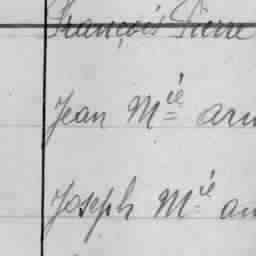 François Pierre
Jean Mie
Joseph Mie